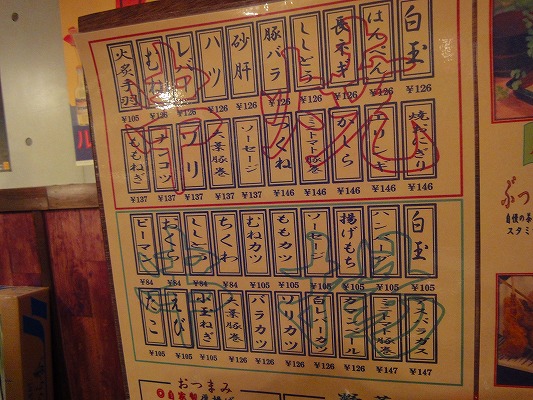 白玉
はんぺん
長ネギ
ししとう
豚バラ
砂肝
ハツ
レバー
むね
火炙手羽
¥126 ¥126 ¥126 ¥126 ¥126 ¥126 ¥126 ¥126 ¥126 ¥105
焼おにぎり
エリンギ
かしら
ミニトマト豚巻
つくね
ソーセージ
大葉豚巻
ワリ
ナンコツ
ももねぎ
¥146 ¥146 ¥146 ¥146 ¥146 ¥137 ¥137 ¥137 ¥137 ¥137
白玉
揚げもち
ソーセージ
ももカツ
むねカツ
ちくわ
ししとう
おくら
ピーマン
¥105 ¥105 ¥105 ¥105 ¥105 ¥105 ¥84 ¥84 ¥84 ¥84
ミニトマト豚巻
白レバーカツ
ソリカツ
バラカツ
大葉豚巻
小玉ねぎ
えび
たこ
¥147 ¥147 ¥126 ¥126 ¥126 ¥126 ¥126 ¥105 ¥105 ¥105
おつまみ
自家製
ぶつ
スタミ
ル